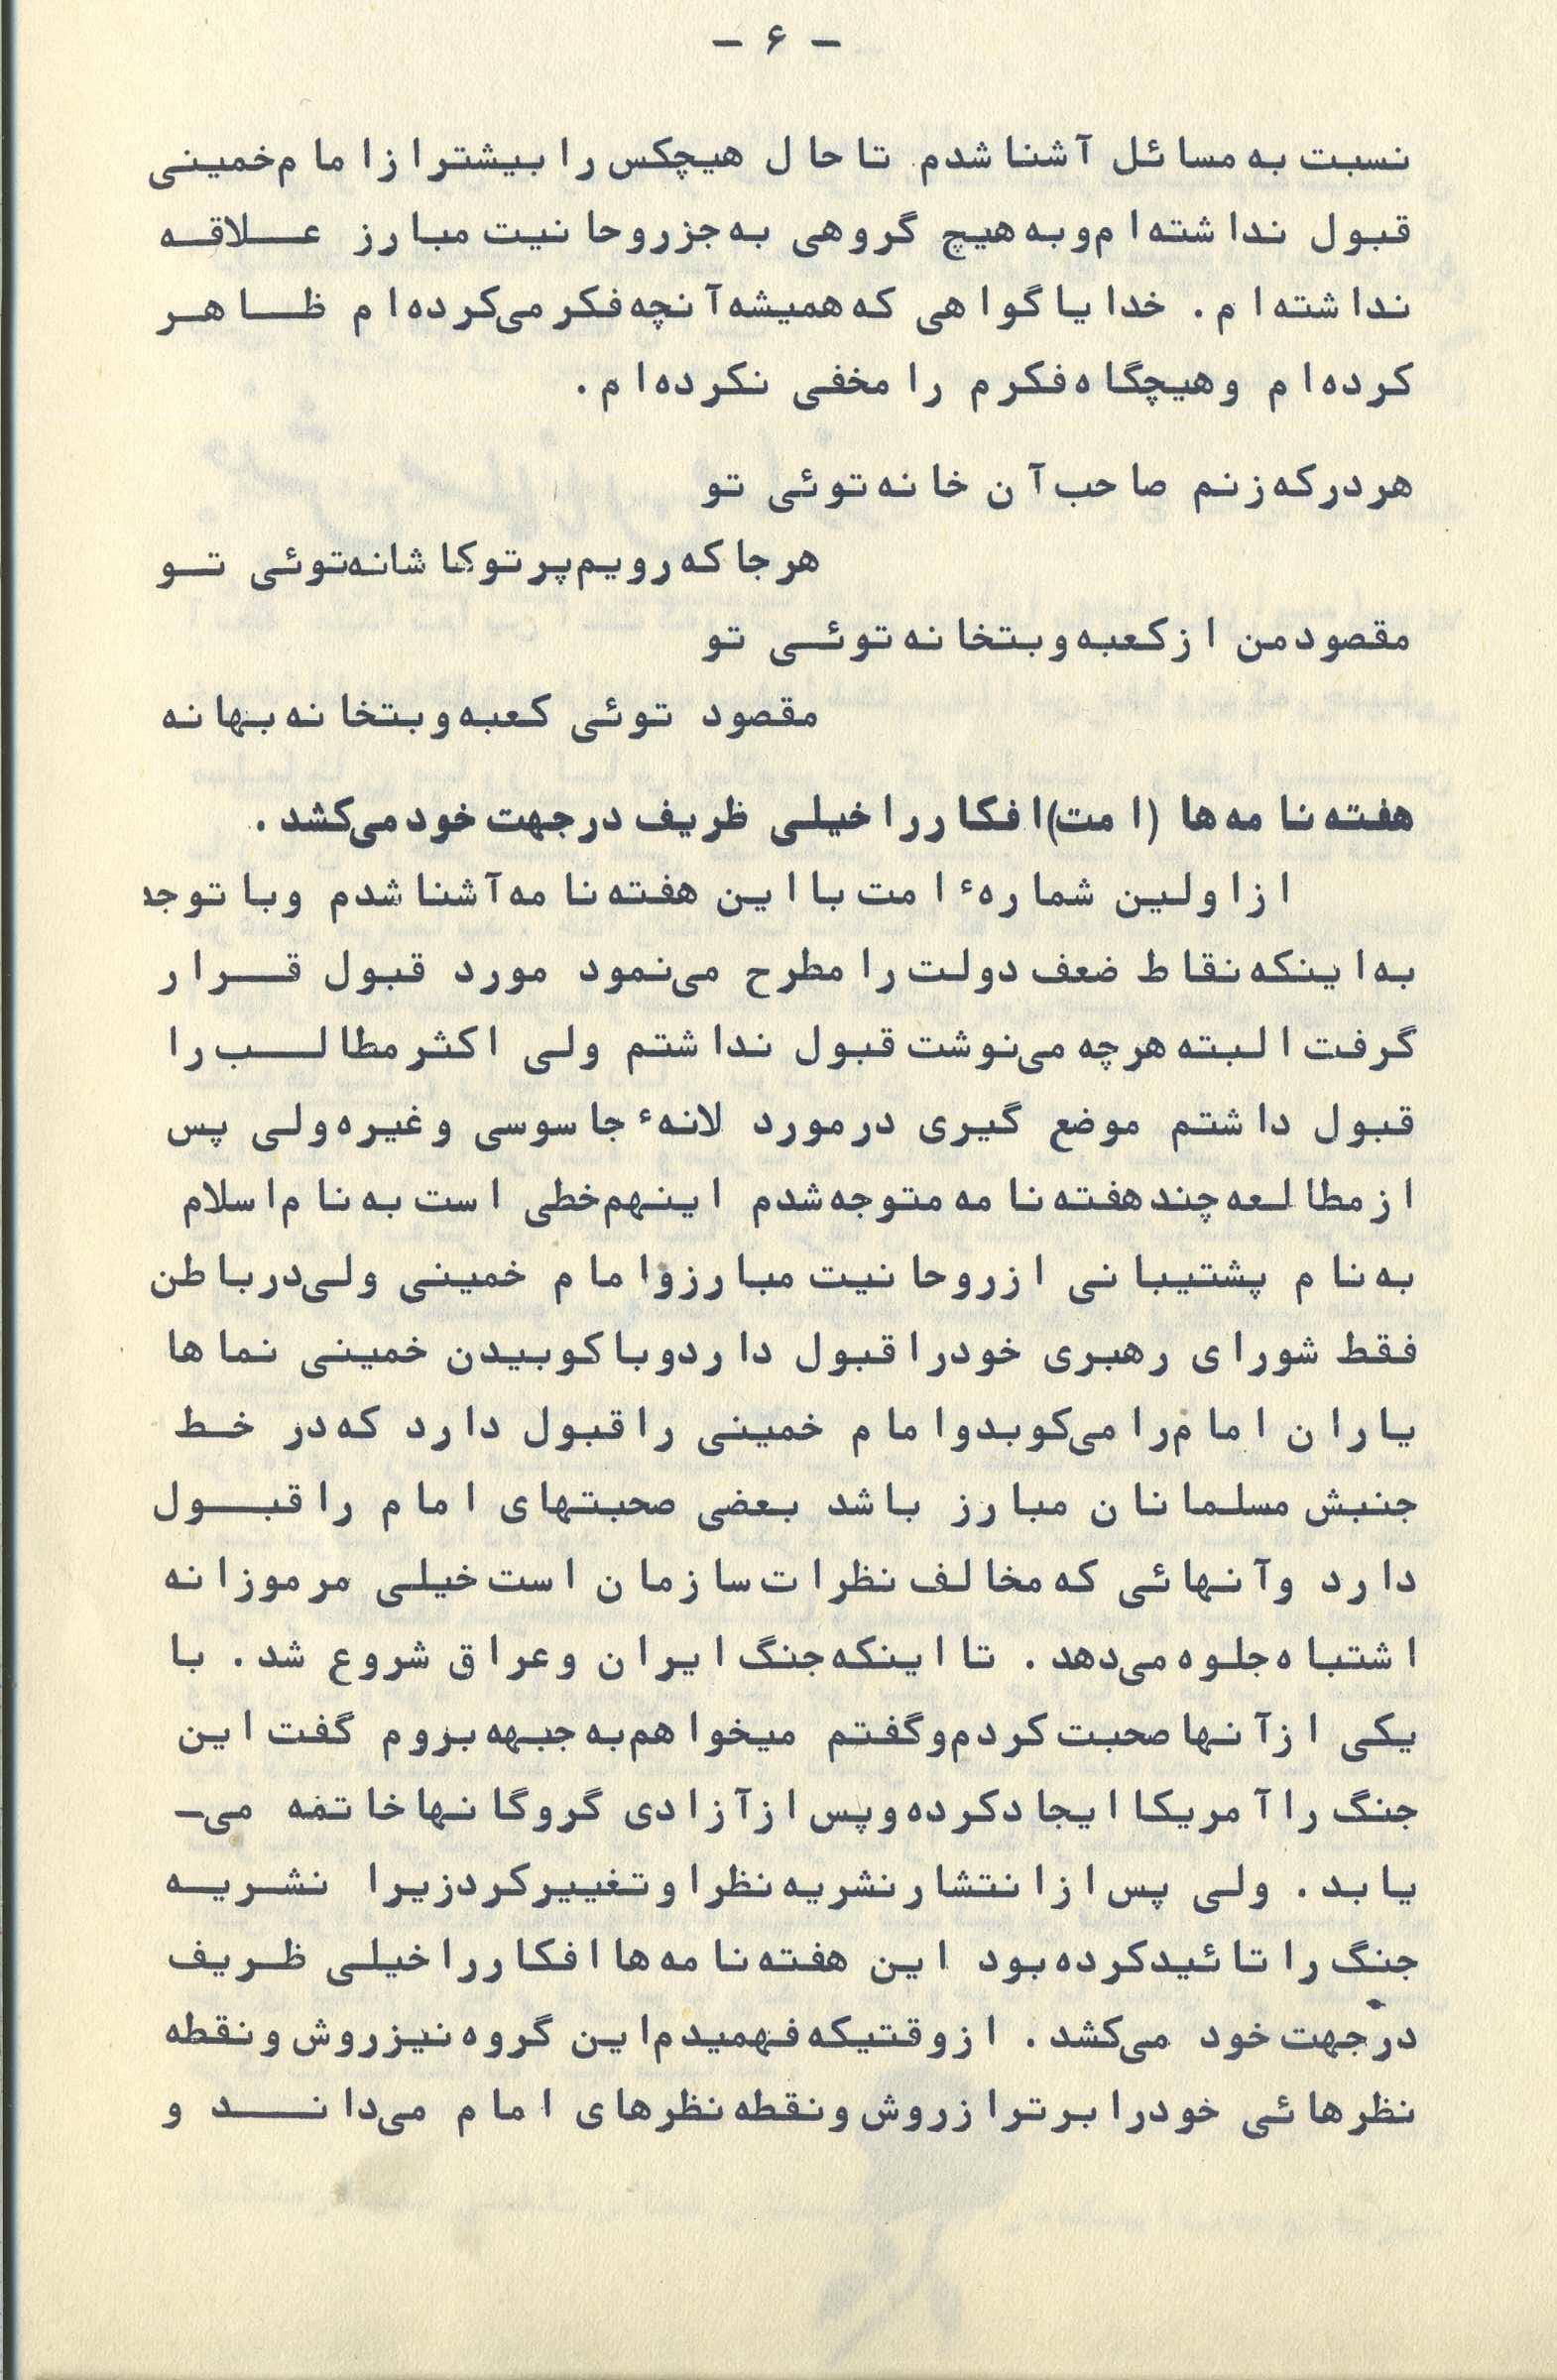 - ۶ -
نسبت به مسائل آشنا شدم. تا حال هیچکس را بیشتر از امام خمینی
قبول نداشته‌ام و به هیچ گروهی به جز روحانیت مبارز علاقه
نداشته‌ام. خدایا گواهی که همیشه آنچه فکر می‌کرده‌ام ظاهر
کرده‌ام و هیچگاه فکرم را مخفی نکرده‌ام.
هر در که زنم صاحب آن خانه توئی تو
هر جا که رویم پرتو کاشانه توئی تو
مقصود من از کعبه و بتخانه توئی تو
مقصود توئی کعبه و بتخانه بهانه
هفته‌نامه‌ها (امت) افکار را خیلی ظریف در جهت خود می‌کشد.
از اولین شمارهٔ امت با این هفته‌نامه آشنا شدم و با توجه
به اینکه نقاط ضعف دولت را مطرح می‌نمود مورد قبول قرار
گرفت البته هرچه می‌نوشت قبول نداشتم ولی اکثر مطالب را
قبول داشتم موضع گیری در مورد لانهٔ جاسوسی و غیره ولی پس
از مطالعه چند هفته‌نامه متوجه شدم اینهم خطی است به نام اسلام
به نام پشتیبانی از روحانیت مبارز و امام خمینی ولی در باطن
فقط شورای رهبری خود را قبول دارد و با کوبیدن خمینی نماها
یاران امام را می‌کوبد و امام خمینی را قبول دارد که در خط
جنبش مسلمانان مبارز باشد بعضی صحبتهای امام را قبول
دارد و آنهائی که مخالف نظرات سازمان است خیلی مرموزانه
اشتباه جلوه می‌دهد. تا اینکه جنگ ایران و عراق شروع شد. با
یکی از آنها صحبت کردم و گفتم میخواهم به جبهه بروم گفت این
جنگ را آمریکا ایجاد کرده و پس از آزادی گروگانها خاتمه می-
یابد. ولی پس از انتشار نشریه نظر او تغییر کرد زیرا نشریه
جنگ را تائید کرده بود این هفته‌نامه‌ها افکار را خیلی ظریف
در جهت خود می‌کشد. از وقتیکه فهمیدم این گروه نیز روش و نقطه
نظرهائی خود را برتر از روش و نقطه نظرهای امام می‌داند و